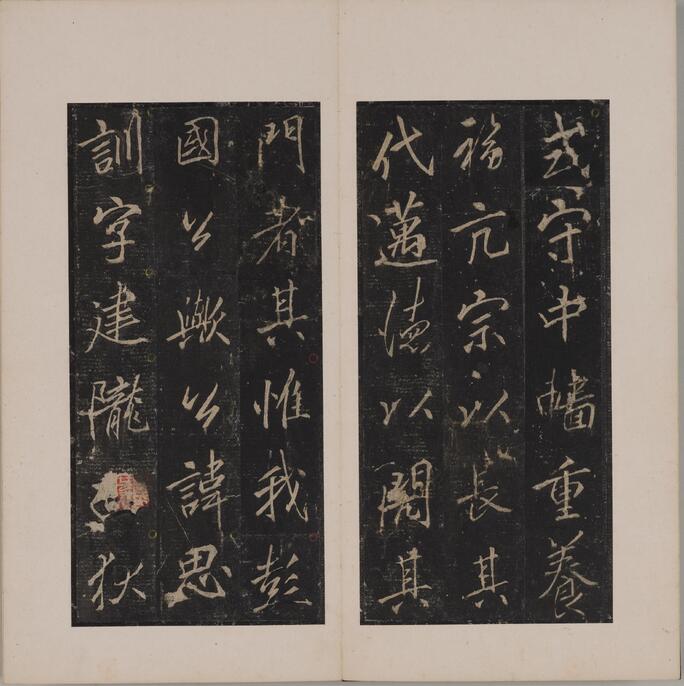 守中重養
福亢宗以長其
代邁德以其
門者其惟我彭
國公歟公諱思
訓字建隴狄